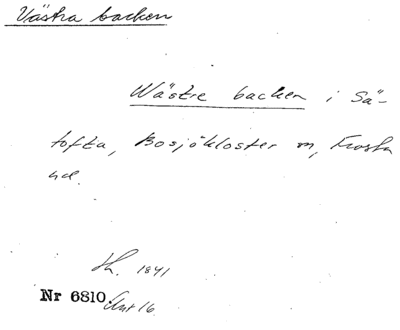 Västra backen
Wästre backen i Sä-
tofta, Bosjökloster m, Frosta
hd.
Sk. 1841
Nr 6810. Ant 16.